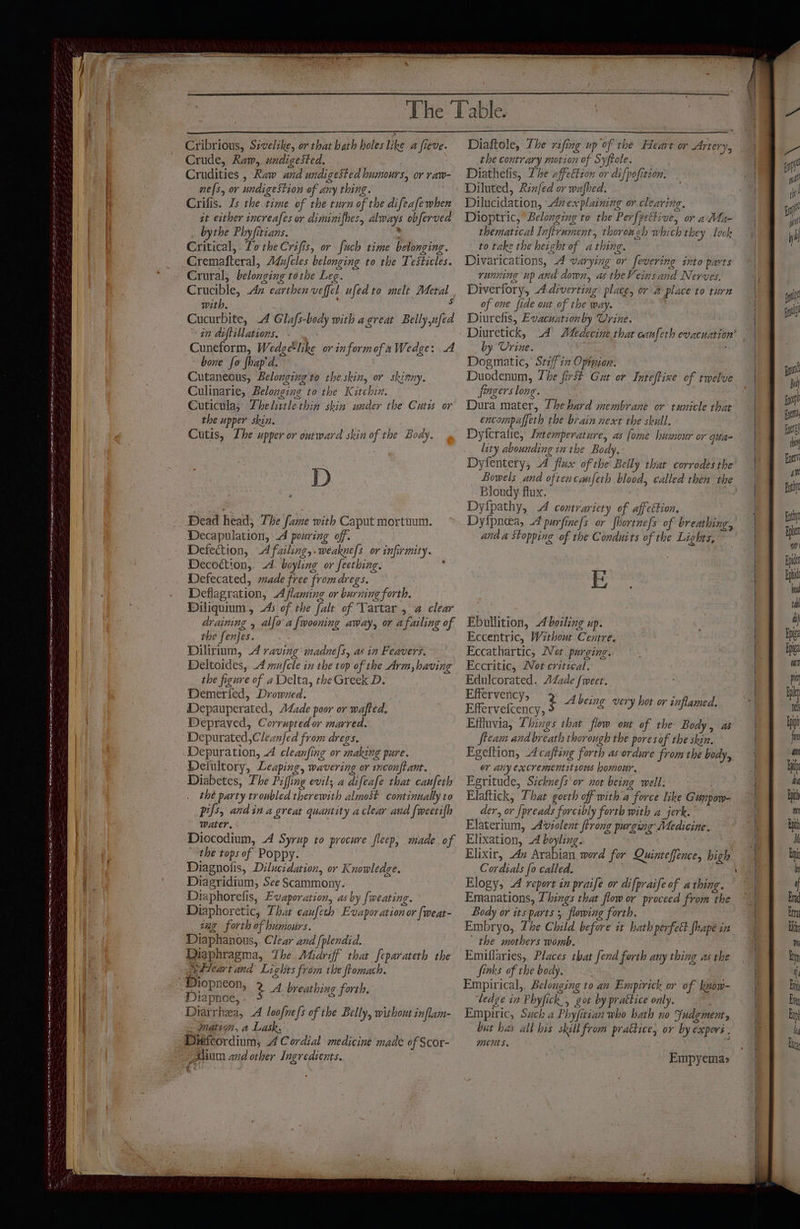 The Table.
Cribrious, Sivelike, or that hath holes like a sieve.
Crude, Raw, undigested.
Crudities, Raw and undigested humours, or raw-
ness, or undigestion of any thing.
Crisis. Is the time of the turn of the disease when
it either increases or diminishes, always observed
by the Physitians.
Critical, To the Crisis, or such time belonging.
Cremasteral, Muscles belonging to the Testicles.
Crural, belonging to the Leg.
Crucible, An earthen vessel used to melt Metal
with.
Cucurbite, A Glass-body with a great Belly, used
in distillations.
Cuneform, Wedgelike or in form of a Wedge: A
bone so shap'd.
Cutaneous, Belonging to the skin, or skinny.
Culinarie, Belonging to the Kitchin.
Cuticula, The little thin skin under the Cutis or
the upper skin.
Cutis, The upper or outward skin of the Body.
D
Dead head, The same with Caput mortuum.
Decapulation, A pouring off.
Defection, A failing, weakness or infirmity.
Decoction, A boyling or seething.
Defecated, made free from dregs.
Deflagration, A flaming or burning forth.
Diliquium, As of the salt of Tartar, a clear
draining, also a swooning away, or a failing of
the senses.
Dilirium, A raving madness, as in Feavers.
Deltoides, A muscle in the top of the Arm, having
the figure of a Delta, the Greek D.
Demersed, Drowned.
Depauperated, Made poor or wasted.
Depraved, Corrupted or marred.
Depurated, Cleansed from dregs.
Depuration, A cleansing or making pure.
Desultory, Leaping, wavering or inconstant.
Diabetes, The Pissing evil; a disease that causeth
the party troubled therewith almost continually to
piss, and in a great quantity a clear and sweetish
water.
Diocodium, A Syrup to procure sleep, made of
the tops of Poppy.
Diagnosis, Dilucidation, or Knowledge.
Diagridium, See Scammony.
Diaphoresis, Evaporation, as by sweating.
Diaphoretic, That causeth Evaporation or sweat-
ing forth of humours.
Diaphanous, Clear and splendid.
Diaphragma, The Midriff that separateth the
Heart and Lights from the stomach.
Diopneon, } A breathing forth.
Diapnoe,
Diarrhæa, A loosness of the Belly, without inflam-
mation, a Lask.
Diascordium, A Cordial medicine made of Scor-
dium and other Ingredients.
Diastole, The rising up of the Heart or Artery,
the contrary motion of Systole.
Diathesis, The affection or disposition.
Diluted, Rinsed or washed.
Dilucidation, An explaining or clearing.
Dioptric, Belonging to the Perspective, or a Ma-
thematical Instrument, thorough which they look
to take the height of a thing.
Divarications, A varying or severing into parts
running up and down, as the Veins and Nerves.
Diversory, A diverting place, or a place to turn
of one side out of the way.
Diuresis, Evacuation by Urine.
Diuretick, A Medecine that causeth evacuation
by Urine.
Dogmatic, Stiff in Opinion.
Duodenum, The first Gut or Intestine of twelve
fingers long.
Dura mater, The hard membrane or tunicle that
encompasseth the brain next the skull.
Dyscrasie, Intemperature, as some humour or qua-
lity abounding in the Body.
Dysentery, A flux of the Belly that corrodes the
Bowels and often causeth blood, called then the
Bloudy flux.
Dyspathy, A contrariety of affection.
Dyspnœa, A pursiness or shortness of breathing,
and a stopping of the Conduits of the Lights,
E
Ebullition, A boiling up.
Eccentric, Without Centre.
Eccathartic, Not purging.
Eccritic, Not critical.
Edulcorated. Made sweet.
Effervency, } A being very hot or inflamed.
Effervescency,
Effluvia, Things that flow out of the Body, as
steam and breath thorough the pores of the skin.
Egestion, A casting forth as ordure from the body,
or any excrementitious homour.
Egritude, Sickness or not being well.
Elastick, That goeth off with a force like Gunpow-
der, or spreads forcibly forth with a jerk.
Elaterium, A violent strong purging Medicine.
Elixation, A boyling.
Elixir, An Arabian word for Quintessence, high
Cordials so called.
Elogy, A report in praise or dispraise of a thing.
Emanations, Things that flow or proceed from the
Body or its parts; flowing forth.
Embryo, The Child before it hath perfect shape in
the mothers womb.
Emissaries, Places that send forth any thing as the
sinks of the body.
Empirical, Belonging to an Empirick or of know-
ledge in Physick, got by practice only.
Empiric, Such a Physitian who hath no Judgment,
but has all his skill from practice, or by experi-
ments.
Empyema,